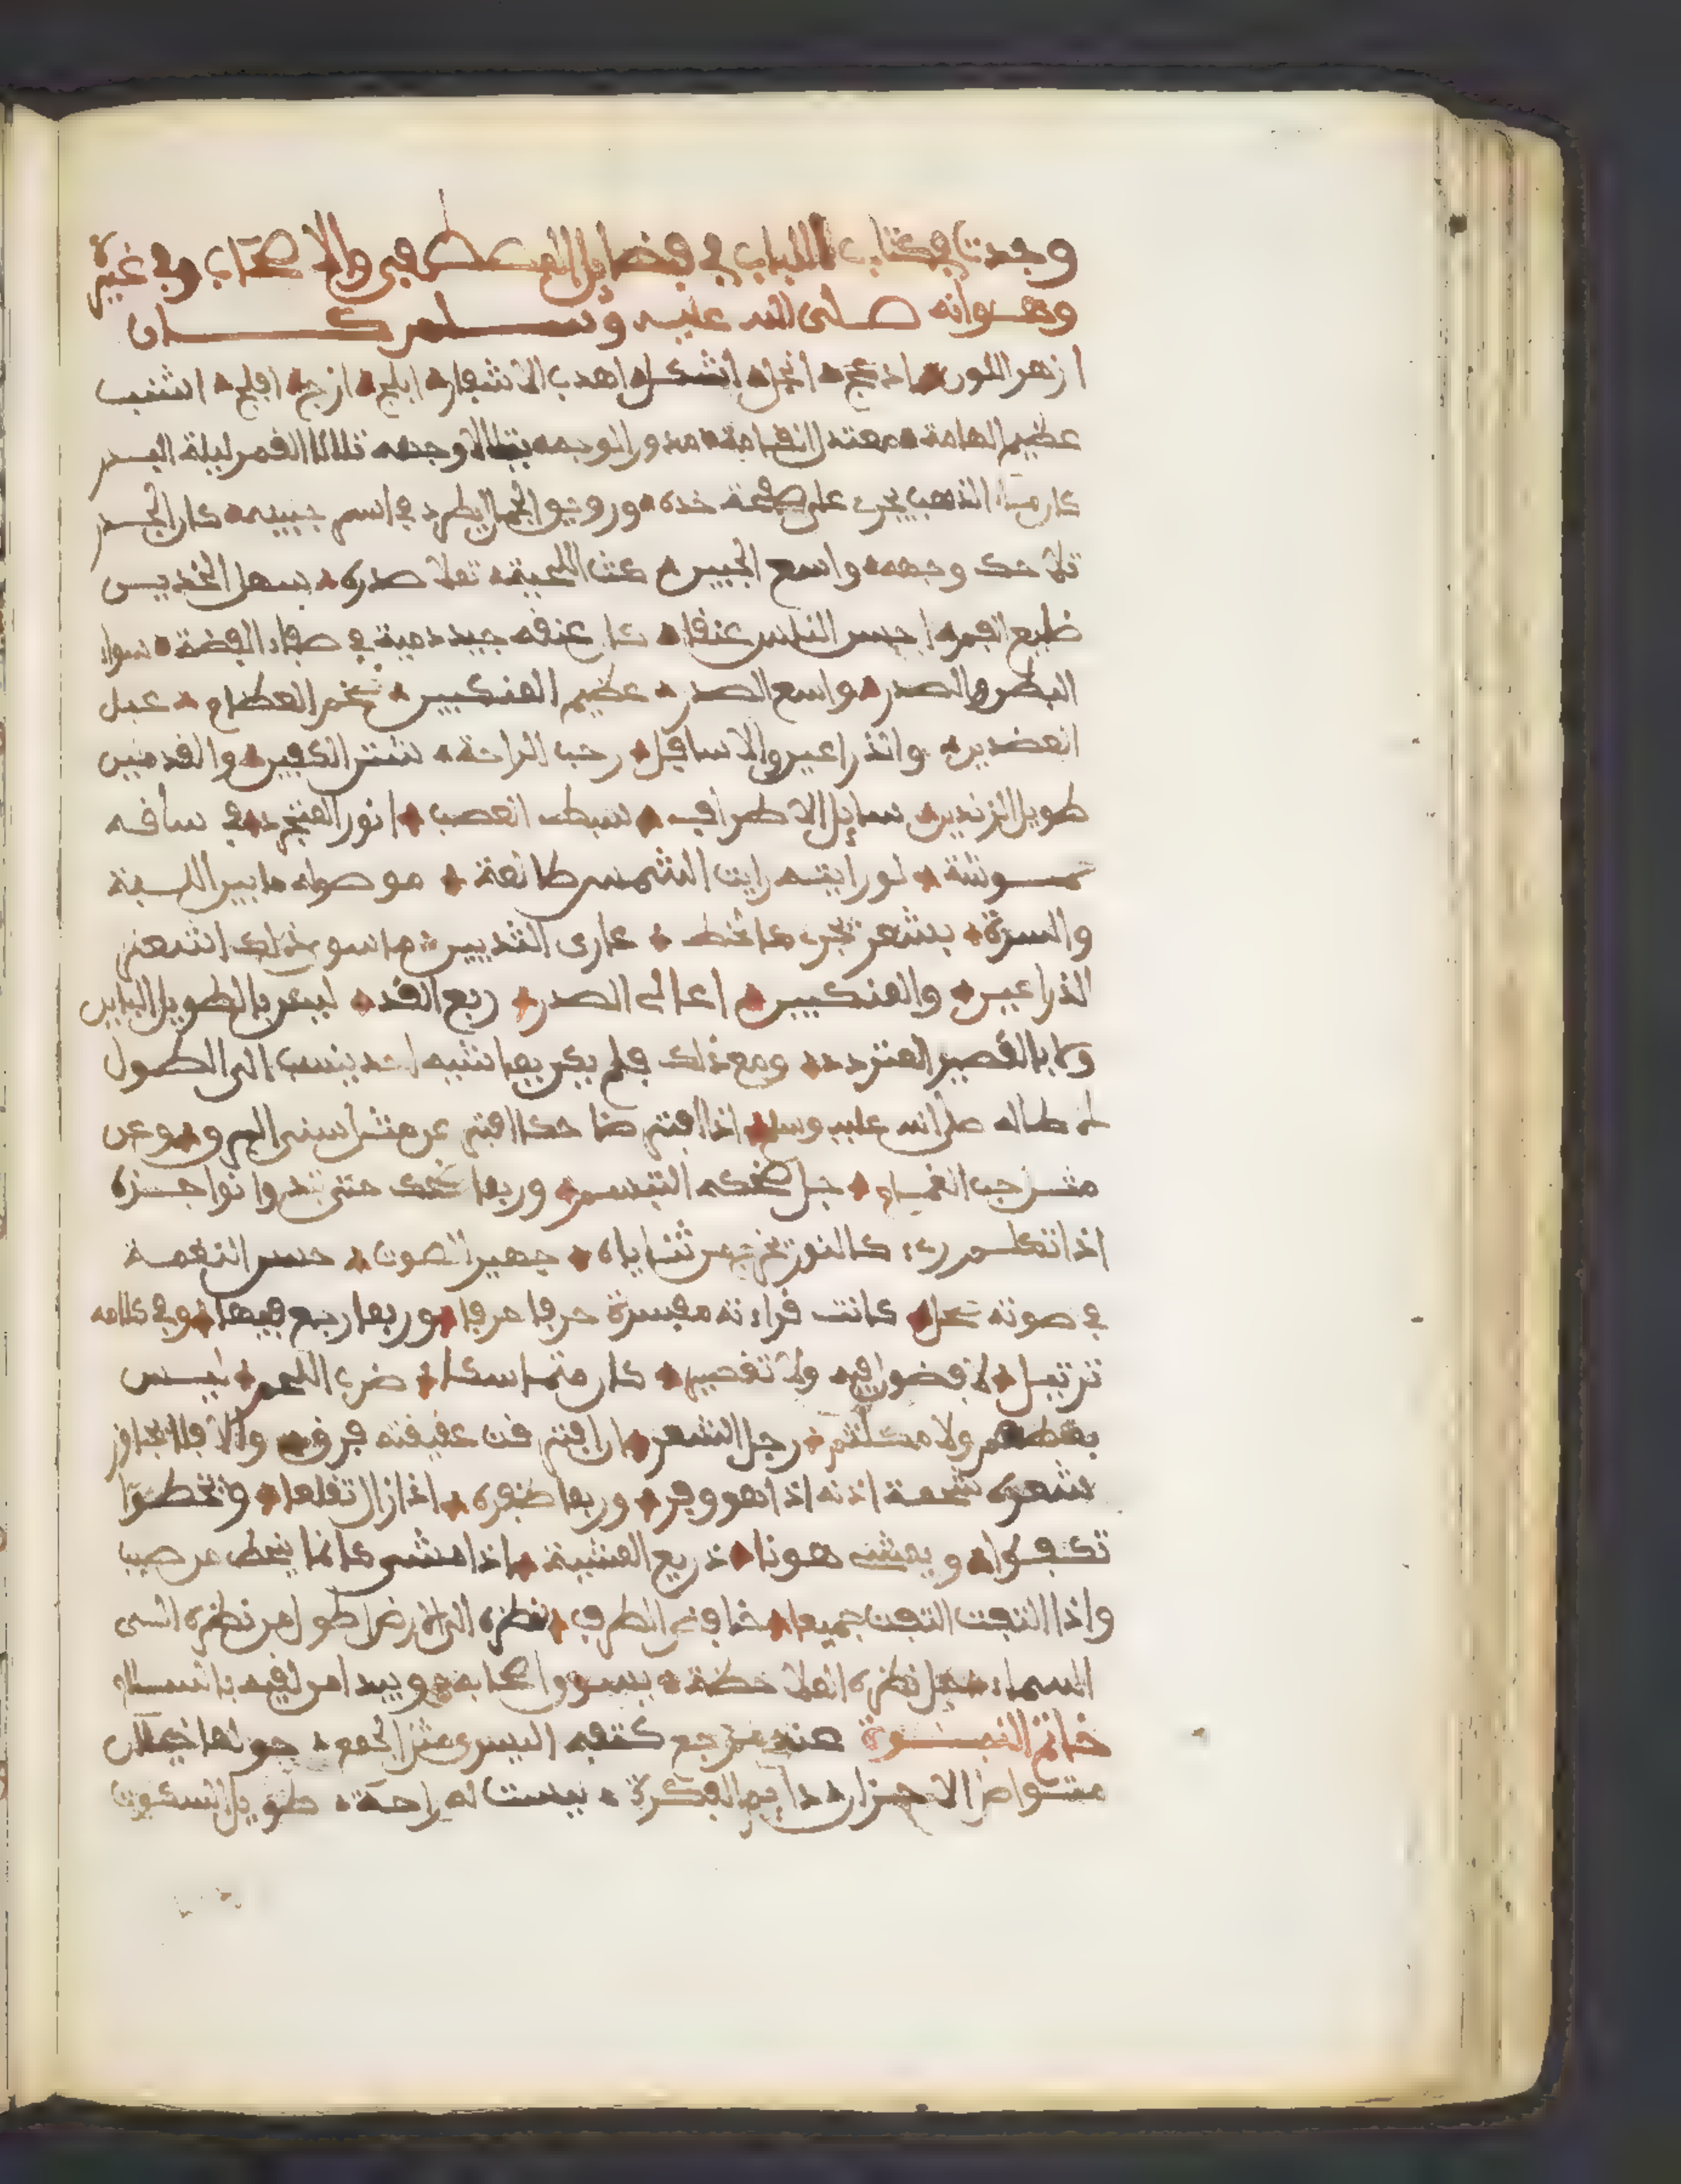 وجدت في كتاب اللباب في فضايل المصطفى والاصحاب وفي غيره
وهو انه صلى الله عليه وسلم كان
ازهر اللون ادعج انجل اشكل اهدب الاشفار ابلج ازج افلج اشنب
عظيم الهامة معتدل القامة مدور الوجه يتلالا وجهه تلالا القمر ليلة البدر
كان ماء الذهب يجري على صفحة خده ورونق الجمال يطرد في اسم جبينه كان الجدر
تلاحك وجهه واسع الجبين كث اللحية تملا صدره سهل الخدين
ضليع الفم احسن الناس عنقا كان عنقه جيد دمية في صفاء الفضة سواء
البطن والصدر واسع الصدر عظيم المنكبين ضخم العظام عبل
العضدين والذراعين والاسافل رحب الراحة شثن الكفين والقدمين
طويل الزندين سايل الاطراف سبط العصب انور المتجرد في ساقه
حموشة لو رايته رايت الشمس طالعة موصول ما بين اللبة
والسرة بشعر يجري كالخط عاري الثديين ما سوى ذلك اشعر
الذراعين والمنكبين اعالي الصدر ربع القد ليس بالطويل الباين
ولا بالقصير المتردد ومع ذلك فلم يكن يماشيه احد ينسب الى الطول
له طاله صلى الله عليه وسلم اذا افتر ضاحكا افتر عن مثل سنى البرق وعن
مثل حب الغمام جل ضحكه التبسم وربما ضحك حتى تبدوا نواجذه
اذا تكلم رءى كالنور يخرج من ثناياه جهير الصوت حسن النغمة
في صوته صحل كانت قراءته مفسرة حرفا حرفا وربما رجع فيها وفي كلامه
ترتيل لا فضول فيه ولا تقصير كان متماسكا ضرب اللحم ليس
بمطهم ولا مكلثم رجل الشعر ان افترقت عقيقته فرق والا فلا يجاوز
شعره شحمة اذنه اذا هو وفر وربما ضفره اذا زال تقلعا ويخطوا
تكفوا ويمشي هونا ذريع المشية اذا مشى كانما ينحط من صبب
واذا التفت التفت جميعا خافض الطرف نظره الى الارض اطول من نظره الى
السماء جل نظره الملاحظة يسوق اصحابه ويبدا من لقيه بالسلام
خاتم النبوة عند مرجع كتفه اليسرى مثل الجمع حولها خيلان
متواصل الاحزان دايم الفكرة ليست له راحة طويل السكوت